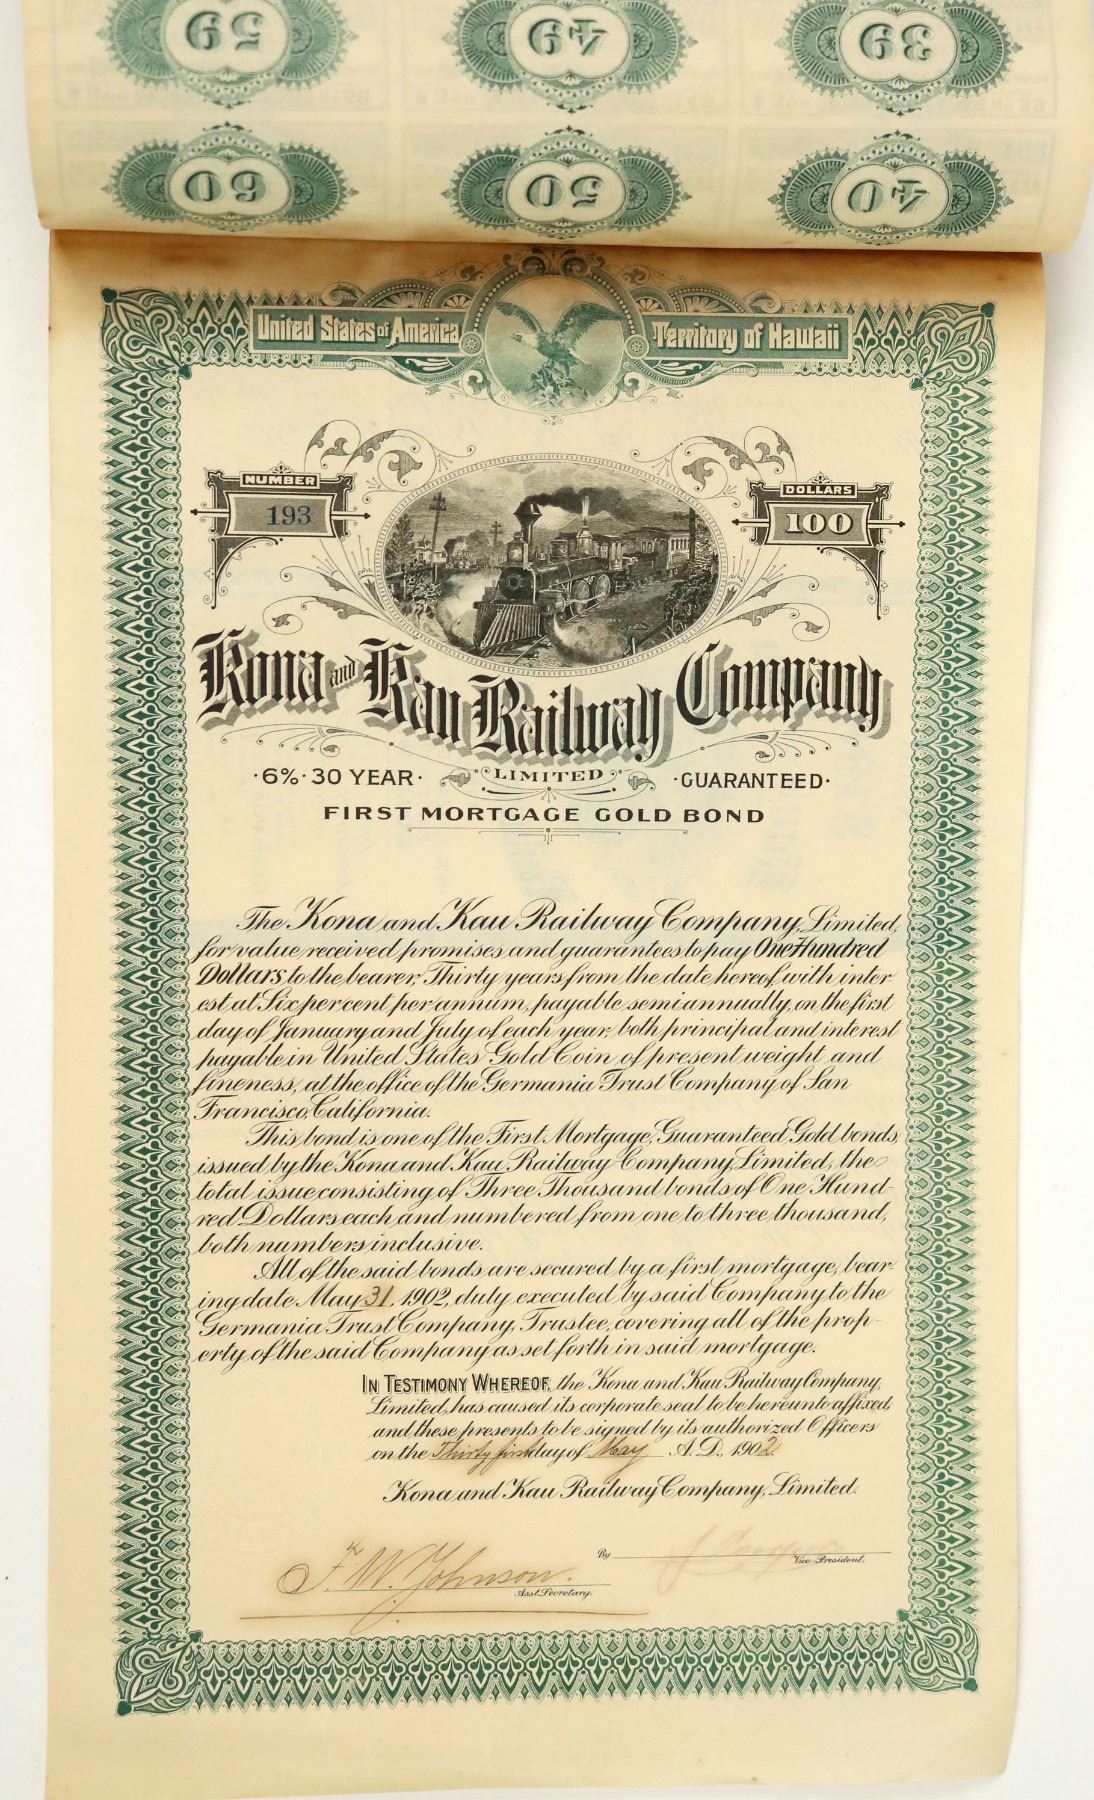 59 49 39
60 50 40
United States of America Territory of Hawaii
NUMBER
193
DOLLARS
100
Kona and Kau Railway Company
·6%·30 YEAR· LIMITED ·GUARANTEED·
FIRST MORTGAGE GOLD BOND
The Kona and Kau Railway Company, Limited,
for value received promises and guarantees to pay One Hundred
Dollars to the bearer, Thirty years from the date hereof, with inter
est at Six per cent per annum, payable semi annually, on the first
day of January and July of each year, both principal and interest
payable in United States Gold Coin of present weight and
fineness, at the office of the Germania Trust Company of San
Francisco, California.
This bond is one of the First Mortgage, Guaranteed, Gold bonds,
issued by the Kona and Kau Railway Company, Limited, the
total issue consisting of Three Thousand bonds of One Hund-
red Dollars each and numbered from one to three thousand,
both numbers inclusive.
All of the said bonds are secured by a first mortgage, bear-
ing date May 31, 1902, duly executed by said Company to the
Germania Trust Company, Trustee, covering all of the prop-
erty of the said Company as set forth in said mortgage.
IN TESTIMONY WHEREOF, the Kona and Kau Railway Company,
Limited, has caused its corporate seal to be hereunto affixed,
and these presents to be signed by its authorized Officers
on the Thirty first day of May A.D., 1902
Kona and Kau Railway Company, Limited.
By
Vice-President.
F. W. Johnson.
Asst. Secretary.